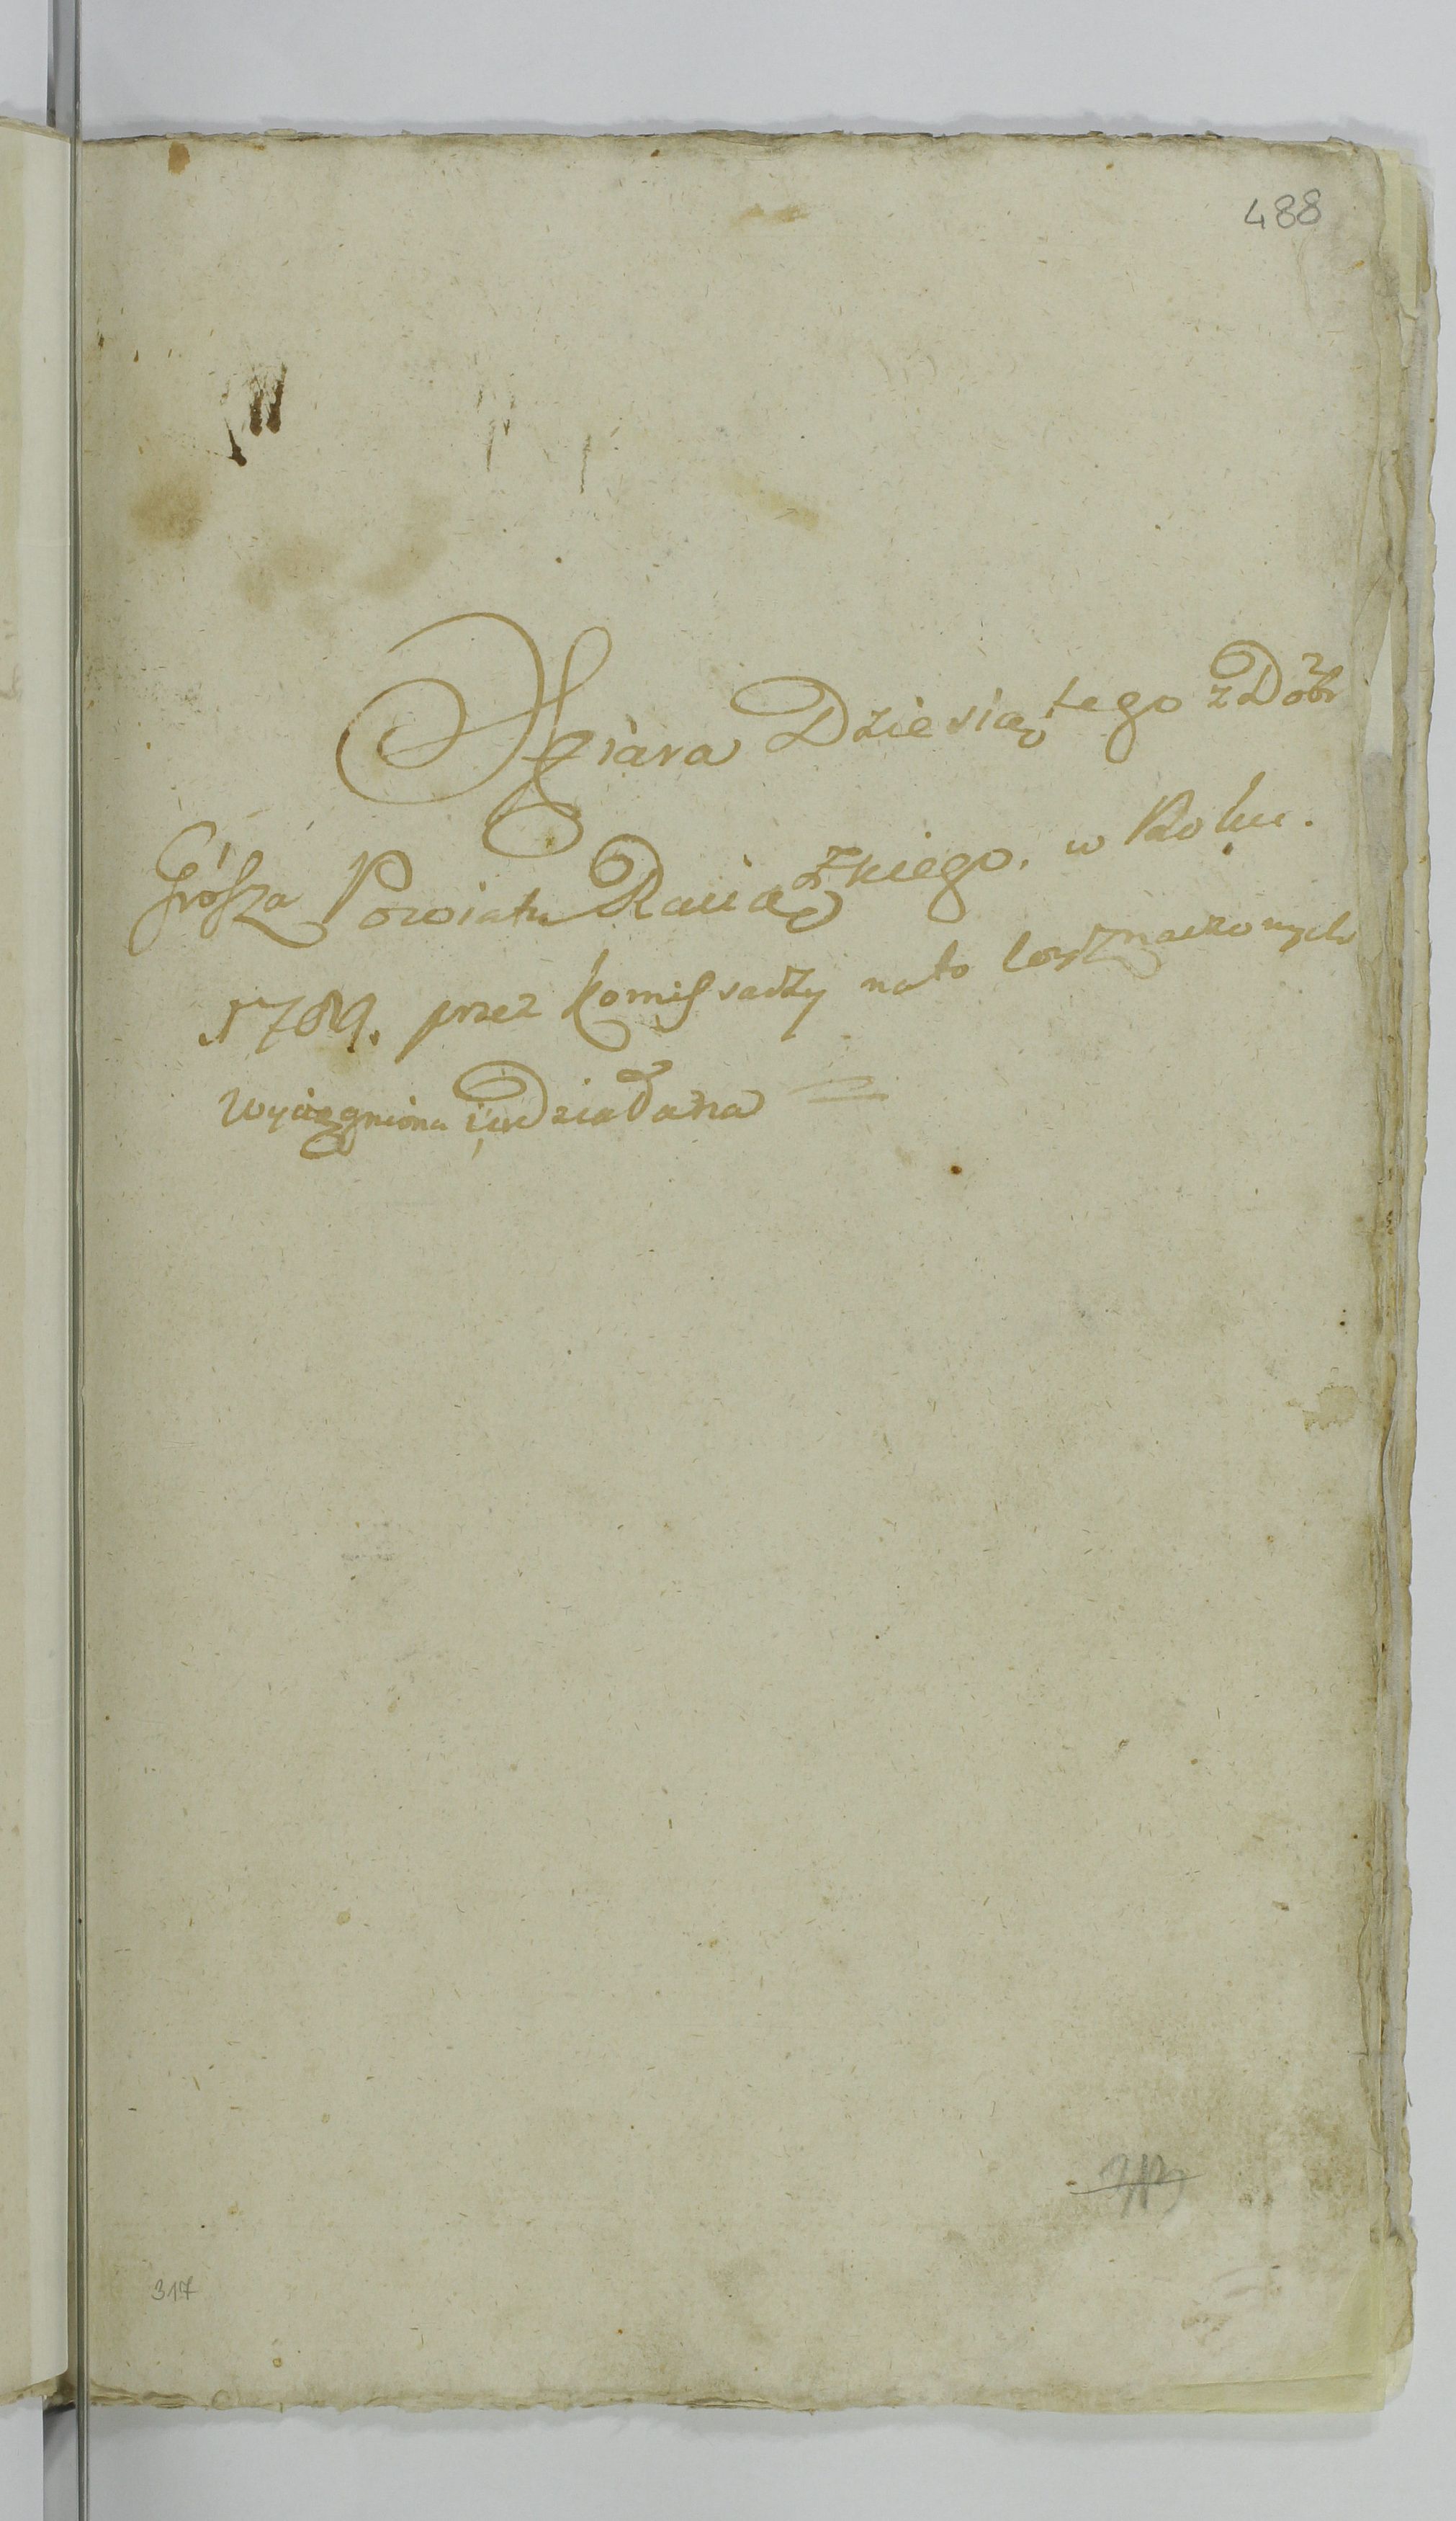 488
Ofiara Dziesiątego z Dobr
Groſza Powiatu Raciązkiego. w Roku.
1789. przez Komiſsarzy na to wyznaczonych
Wyciągniona i udziałana =
317